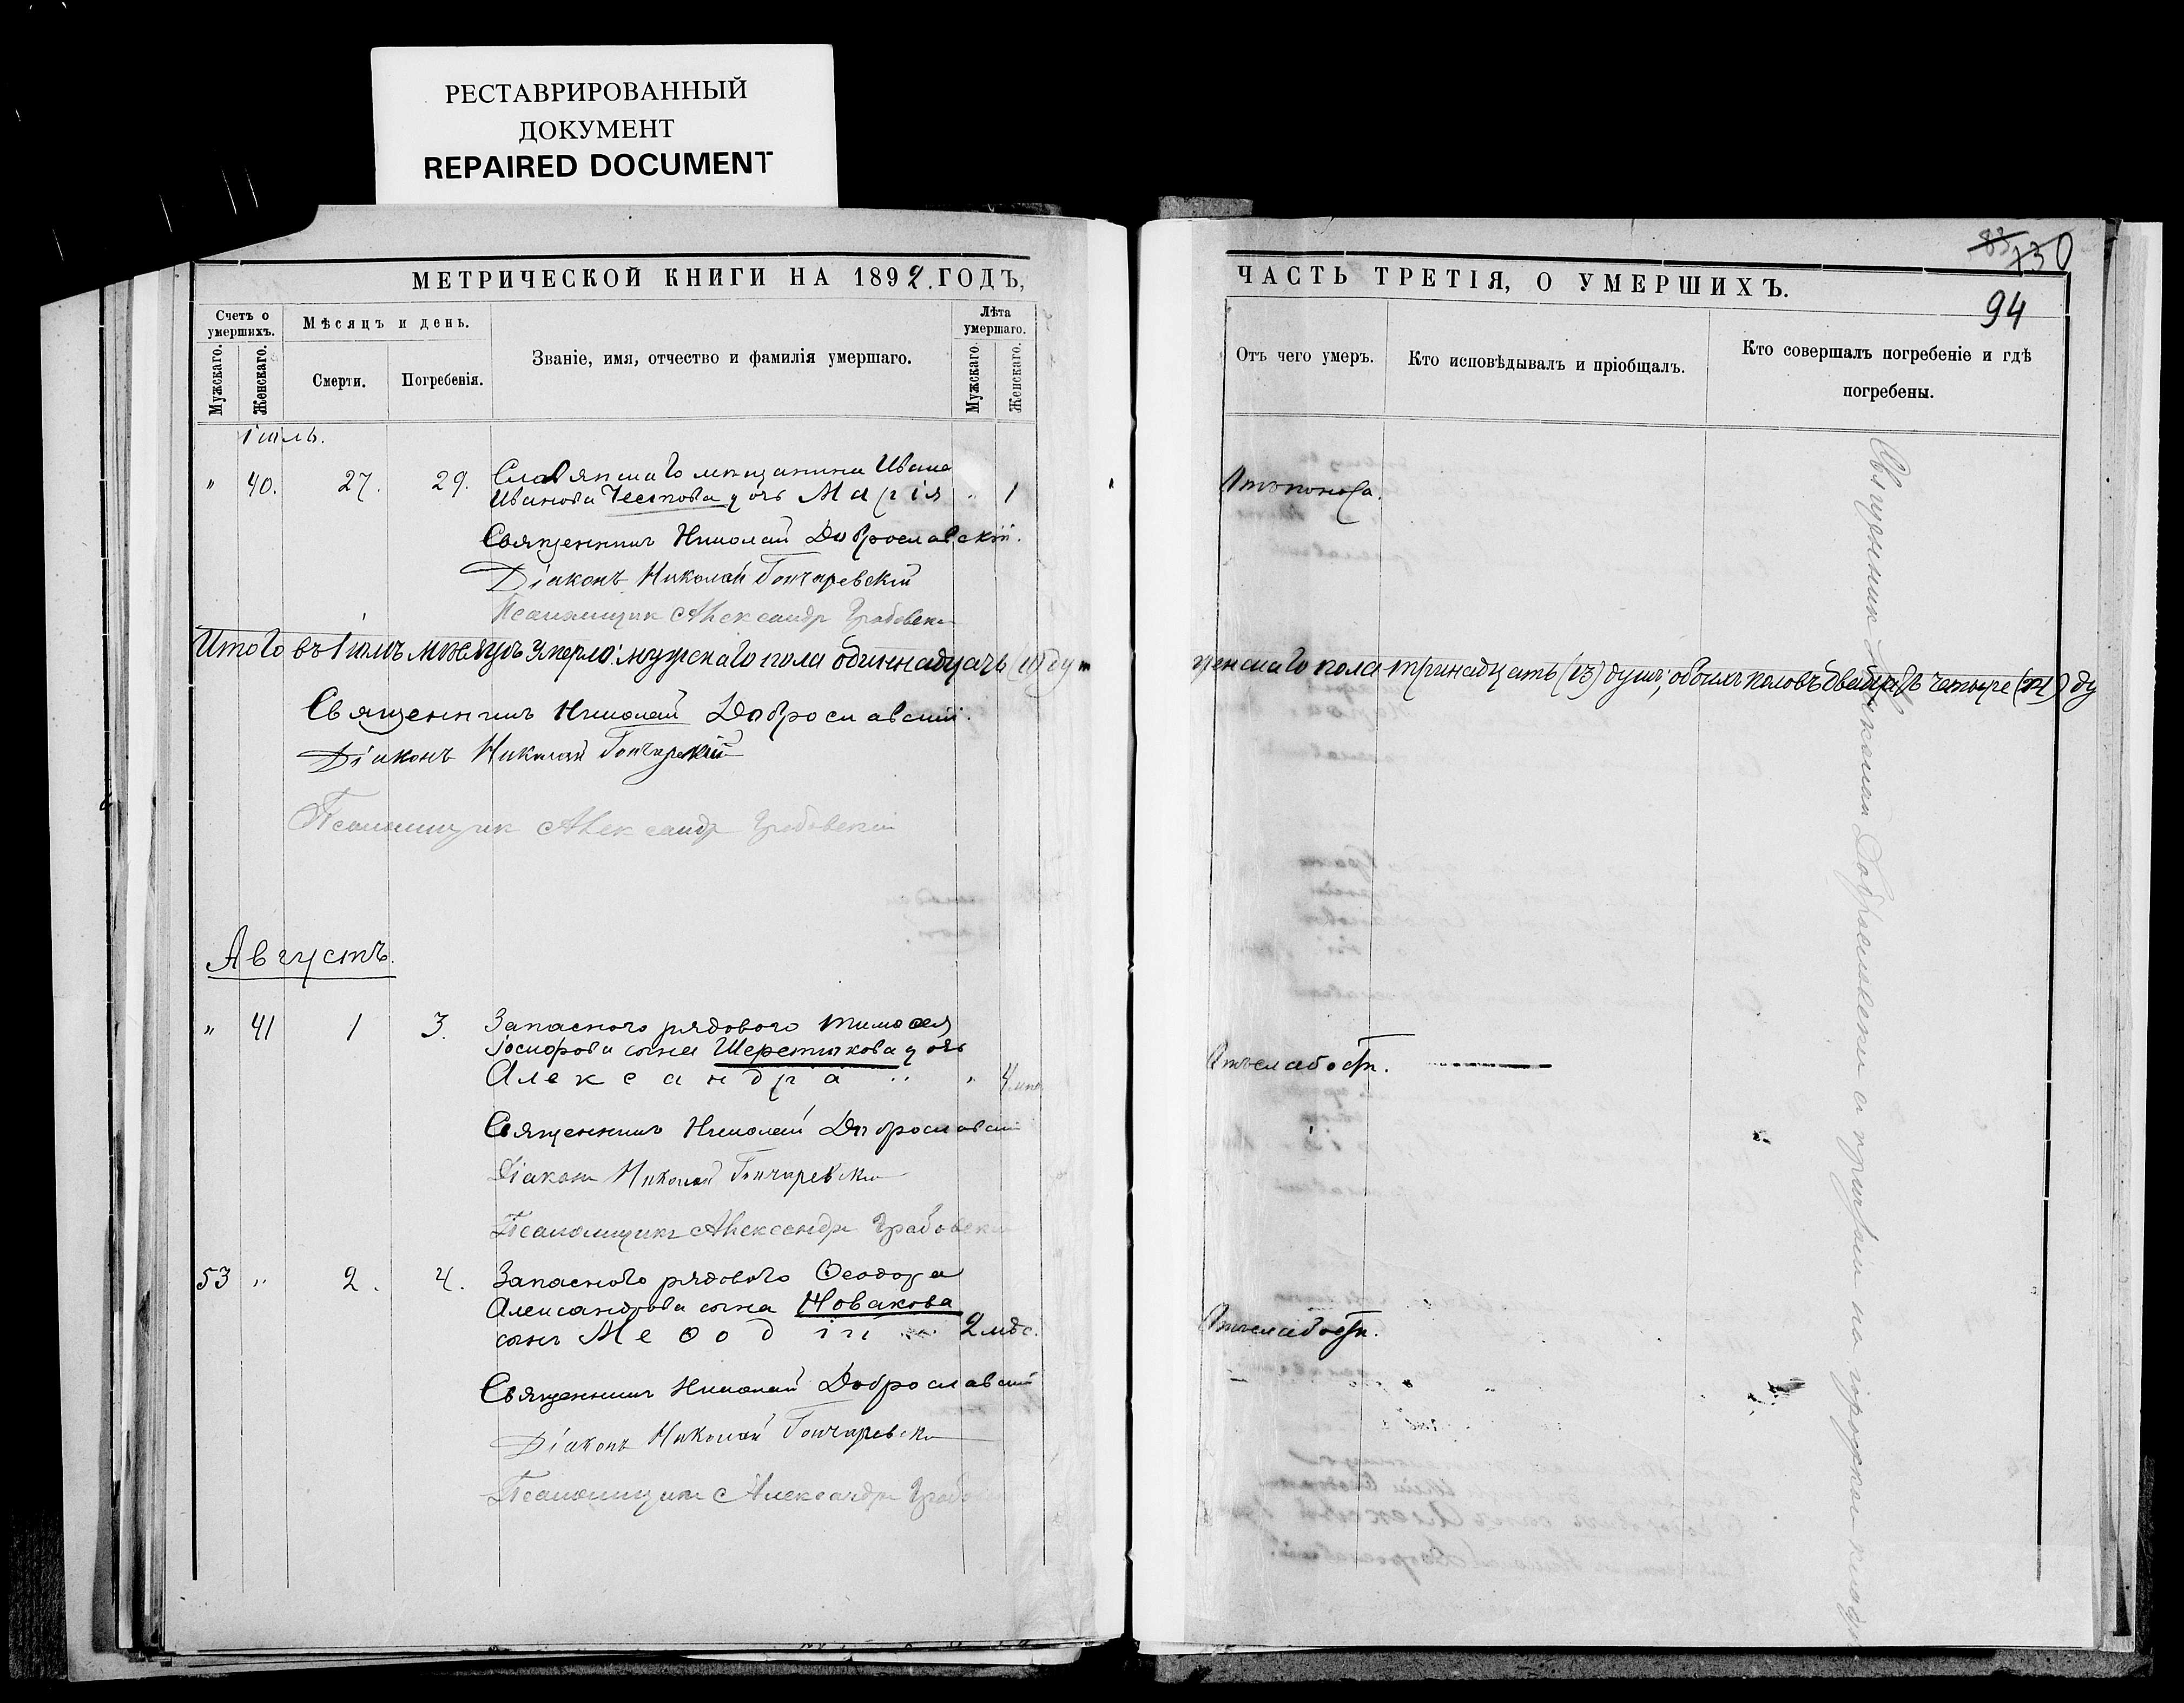 РЕСТАВРИРОВАННЫЙ
ДОКУМЕНТ
REPAIRED DOCUMENT
МЕТРИЧЕСКОЙ КНИГИ НА 1892. ГОДЪ,
Счетъ о умершихъ.
Мужскаго.
Женскаго.
Мѣсяцъ и день.
Смерти.
Погребенія.
Званіе, имя, отчество и фамилія умершаго.
Лѣта умершаго.
Мужскаго.
Женскаго.
Іюль.
" 40. 27. 29. Славянскаго мѣщанина Ивана
Иванова дочь Марія " 1
Священникъ Николай Доброславскій.
Діаконъ Николай Гончаревскій
Псаломщик Александр Грабовски
Итого въ Іюлѣ мѣсяцѣ умерло: мужскаго пола одиннадцать (11) душ
Священникъ Николай Доброславскій.
Діаконъ Николай Гончаревскій
Псаломщик Александр Грабовскій
Августъ.
" 41 1 3. Запаснаго рядового Тимоѳея
Іосифова сына дочь
Александра " 4 мѣс.
Священникъ Николай Доброславскій
Діаконъ Николай Гончаревскій
Псаломщикъ Александръ Грабовски
53 " 2. 4. Запаснаго рядового Ѳеодора
Александрова сына Новакова
сынъ Меѳодій 2 мѣс.
Священникъ Николай Доброславскій
Діаконъ Николай Гончаревски
Псаломщикъ Александръ Грабо
83 130
ЧАСТЬ ТРЕТІЯ, О УМЕРШИХЪ.
94
Отъ чего умеръ.
Кто исповѣдывалъ и пріобщалъ.
Кто совершалъ погребеніе и гдѣ
погребены.
Отъ поноса.
женскаго пола тринадцать (13) душъ; обоихъ половъ двадцать четыре (24) ду
Отъ слабости.
Отъ слабости.
Священник Николай Доброславски с причтом на городском кладби